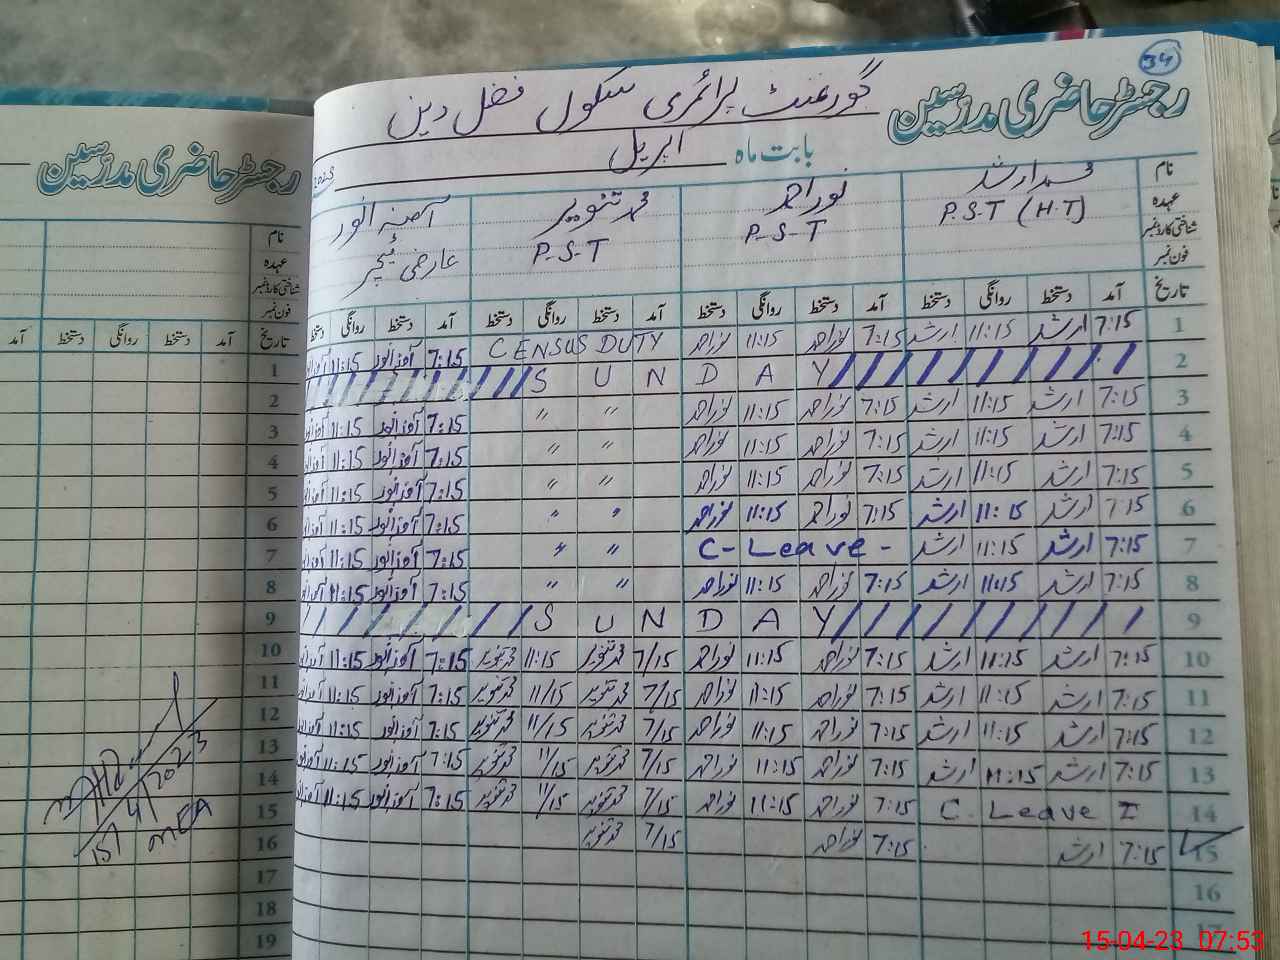 34
رجسٹر حاضری مدرسین
گورنمنٹ پرائمری سکول فضل دین
بابت ماہ اپریل
نام محمد ارشد نور احمد محمد تنویر آصفہ انور
عہدہ P.S.T (H.T) P-S-T P-S-T عارضی ٹیچر
شناختی کارڈ نمبر
فون نمبر
تاریخ آمد دستخط روانگی دستخط آمد دستخط روانگی دستخط آمد دستخط روانگی دستخط آمد دستخط روانگی دستخط
1 7:15 ارشد 11:15 ارشد 7:15 نور احمد 11:15 نور احمد CENSUS DUTY 7:15 آصفہ انور 11:15
2 SUNDAY
3 7:15 ارشد 11:15 ارشد 7:15 نور احمد 11:15 نور احمد " " 7:15 آصفہ انور 11:15
4 7:15 ارشد 11:15 ارشد 7:15 نور احمد 11:15 نور احمد " " 7:15 آصفہ انور 11:15
5 7:15 ارشد 11:15 ارشد 7:15 نور احمد 11:15 نور احمد " " 7:15 آصفہ انور 11:15
6 7:15 ارشد 11:15 ارشد 7:15 نور احمد 11:15 نور احمد " " 7:15 آصفہ انور 11:15
7 7:15 ارشد 11:15 ارشد C-Leave- " " 7:15 آصفہ انور 11:15
8 7:15 ارشد 11:15 ارشد 7:15 نور احمد 11:15 نور احمد " " 7:15 آصفہ انور 11:15
9 SUNDAY
10 7:15 ارشد 11:15 ارشد 7:15 نور احمد 11:15 نور احمد 7/15 محمد تنویر 11:15 محمد تنویر 7:15 آصفہ انور 11:15
11 7:15 ارشد 11:15 ارشد 7:15 نور احمد 11:15 نور احمد 7/15 محمد تنویر 11/15 محمد تنویر 7:15 آصفہ انور 11:15
12 7:15 ارشد 11:15 ارشد 7:15 نور احمد 11:15 نور احمد 7/15 محمد تنویر 11/15 محمد تنویر 7:15 آصفہ انور 11:15
13 7:15 ارشد 11:15 ارشد 7:15 نور احمد 11:15 نور احمد 7/15 محمد تنویر 11/15 محمد تنویر 7:15 آصفہ انور 11:15
14 C. Leave I 7:15 نور احمد 11:15 نور احمد 7/15 محمد تنویر 11/15 محمد تنویر 7:15 آصفہ انور 11:15
15 7:15 ارشد 7:15 نور احمد 7/15 محمد تنویر
16
17
رجسٹر حاضری مدرسین
نام
عہدہ
شناختی کارڈ نمبر
فون نمبر
تاریخ آمد دستخط روانگی دستخط آمد
1
2
3
4
5
6
7
8
9
10
11
12
13
14
15
16
17
18
19
15/4/2023
MEA
15-04-23 07:53